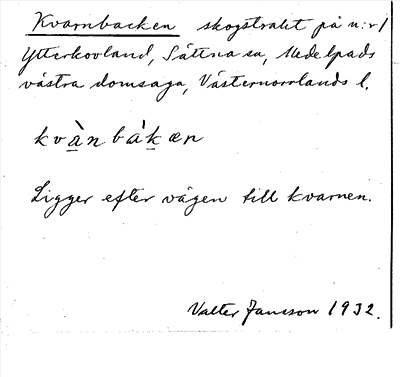 Kvarnbacken skogstrakt på n:r 1
Ytterkovland, Sättna sn, Medelpads
västra domsaga, Västernorrlands l.
kvànbákæn
Ligger efter vägen till kvarnen.
Valter Jansson 1932.